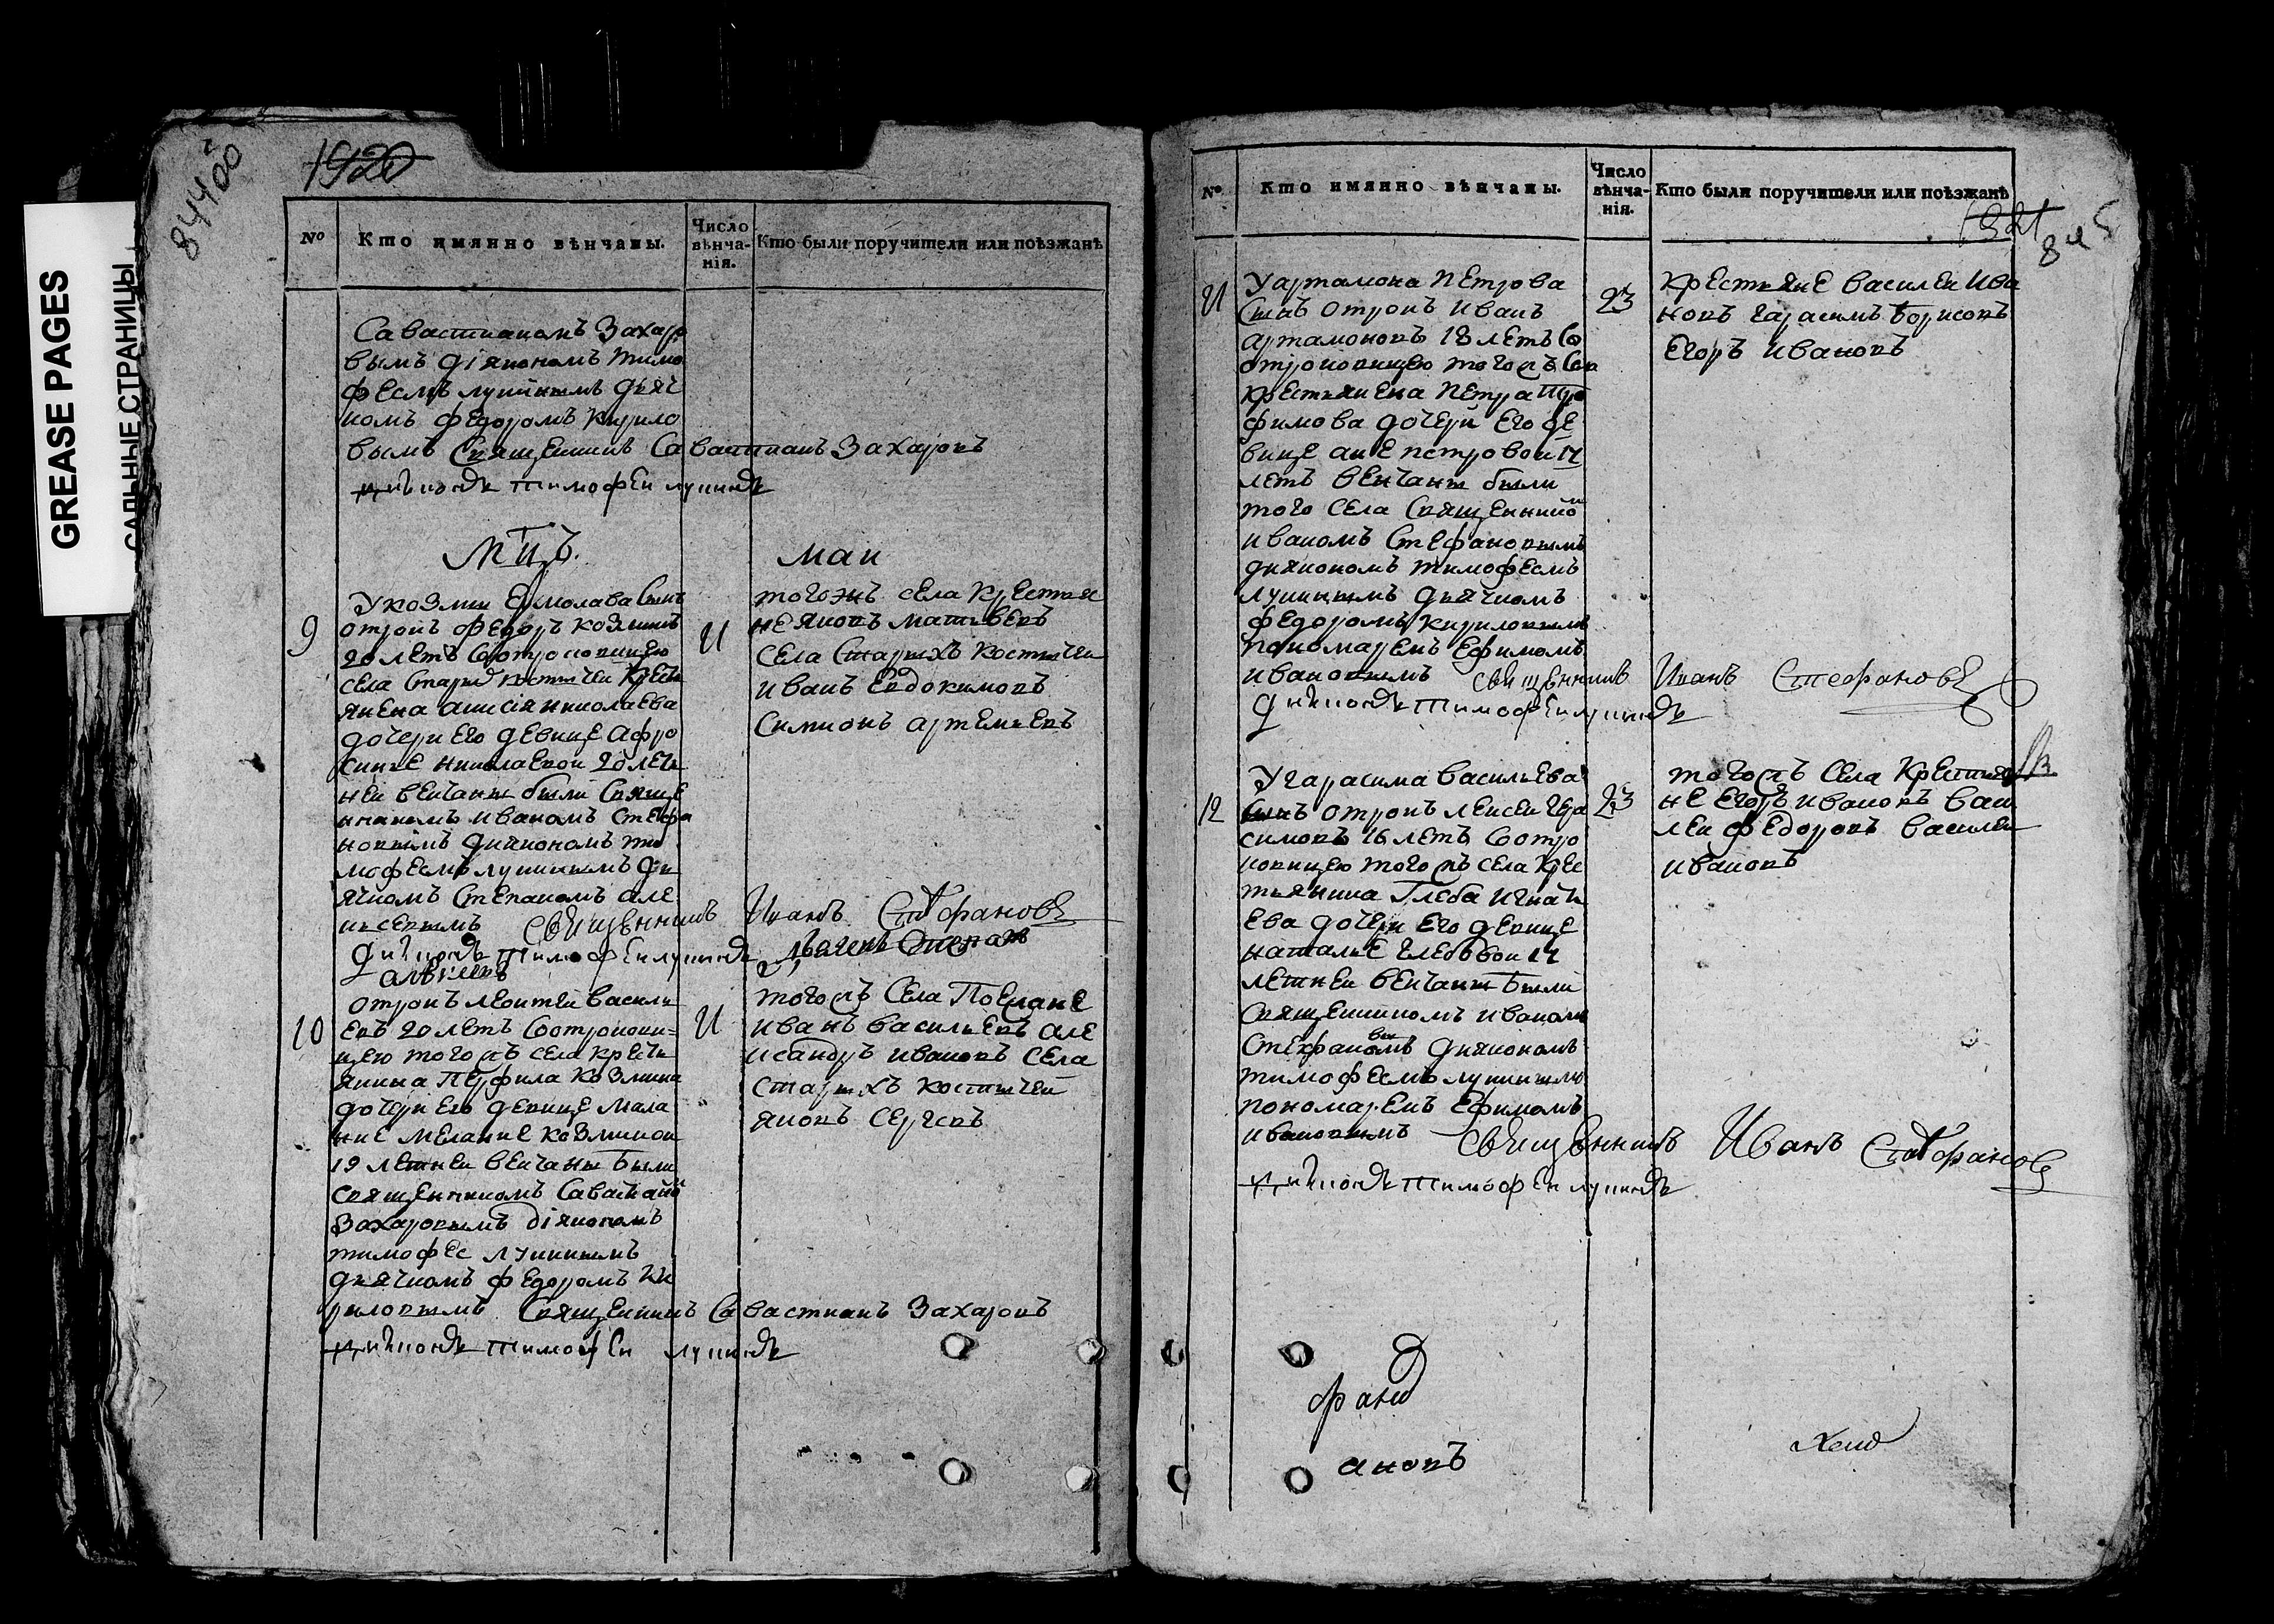 GREASE PAGES
САЛЬНЫЕ СТРАНИЦЫ
844 об
1920
№
Кто имянно вѣнчаны.
Число вѣнча-нія.
Кто были поручители или поѣзжанѣ
Савастианомъ Захаро
вымъ діякономъ тимо
феемъ лупинымъ дьяч
комъ федоромъ Кирило
вымъ Священникъ Савастианъ Захаровъ
диаконъ тимофеи лупинъ
Мцъ.
маи
9
У козмы Ермолава Сынъ
отрокъ федоръ козминъ
20 летъ Соотроковицею
села Старых костычеи Крестъ
янена николаева
дочери Его девице Афро
синье николаевои 20 лет
неи венчаны были Свяще
нникомъ иваномъ Стефа
новымъ дияконом ти
мофеемъ лупинымъ дь
ячкомъ Степаномъ але
ксевымъ свещенникъ Иванъ Стефановъ
диаконъ тимофеи лупинъ дьячекъ Степанъ
алексевъ
11
тогожъ села Крестья
не яковъ матвеевъ
Села Старыхъ Костычеи
иванъ Евдокимовъ
Симионъ артемьевъ
10
отрокъ леонтеи василь
евъ 20 летъ Соотрокови=
цею того жъ села крестъ
янина Перфила Козмина
дочери Его девице Мала
ние Мелание козминои
19 летнеи венчаны были
священникомъ Савастиано
Захаровымъ діякономъ
тимофее лупинымъ
дьячкомъ федоромъ Ки
риловымъ Священникъ Савастианъ Захаровъ
диаконъ тимофеи лупинъ
11
того жъ Села Поезжане
иванъ васильевъ але
ксандръ ивановъ Села
старыхъ костычеи
яковъ Сергевъ
№
Кто имянно вѣнчаны.
Число вѣнча-нія.
Кто были поручители или поѣзжанѣ
1921
845
11
У артамона Петрова
Сынъ отрокъ иванъ
артамоновъ 18 летъ Со
отроковицею того жъ Села
крестьянена Петра Тро
фимова дочери Его де
вице ане петровои 17
летъ венчаны были
того села Священнико
иваномъ Стефановымъ
дияконом тимофеемъ
лупинымъ дьячкомъ
федоромъ кириловымъ
пономаремъ Ефимомъ
ивановымъ свещенникъ Иванъ Стефановъ
диаконъ тимофеи лупинъ
23
крестьяне василеи ива
новъ гарасимъ борисовъ
Егоръ ивановъ
12
У гарасима васильева
Сынъ отрокъ лексеи гера
симовъ 16 летъ Соотро
ковицею того жъ села Крес
тьянина Глеба игнать
ева дочери Его девице
наталье глебовои 17
летнеи венчаны были
священником иваном
Стефановымъ дияконом
тимофеемъ лупинымъ
пономаремъ Ефимомъ
ивановымъ свещенникъ Иванъ Стефановъ
диаконъ тимофеи лупинъ
23
того жъ села Крестья
не Егоръ ивановъ васи
леи федоровъ василеи
ивановъ
ановъ